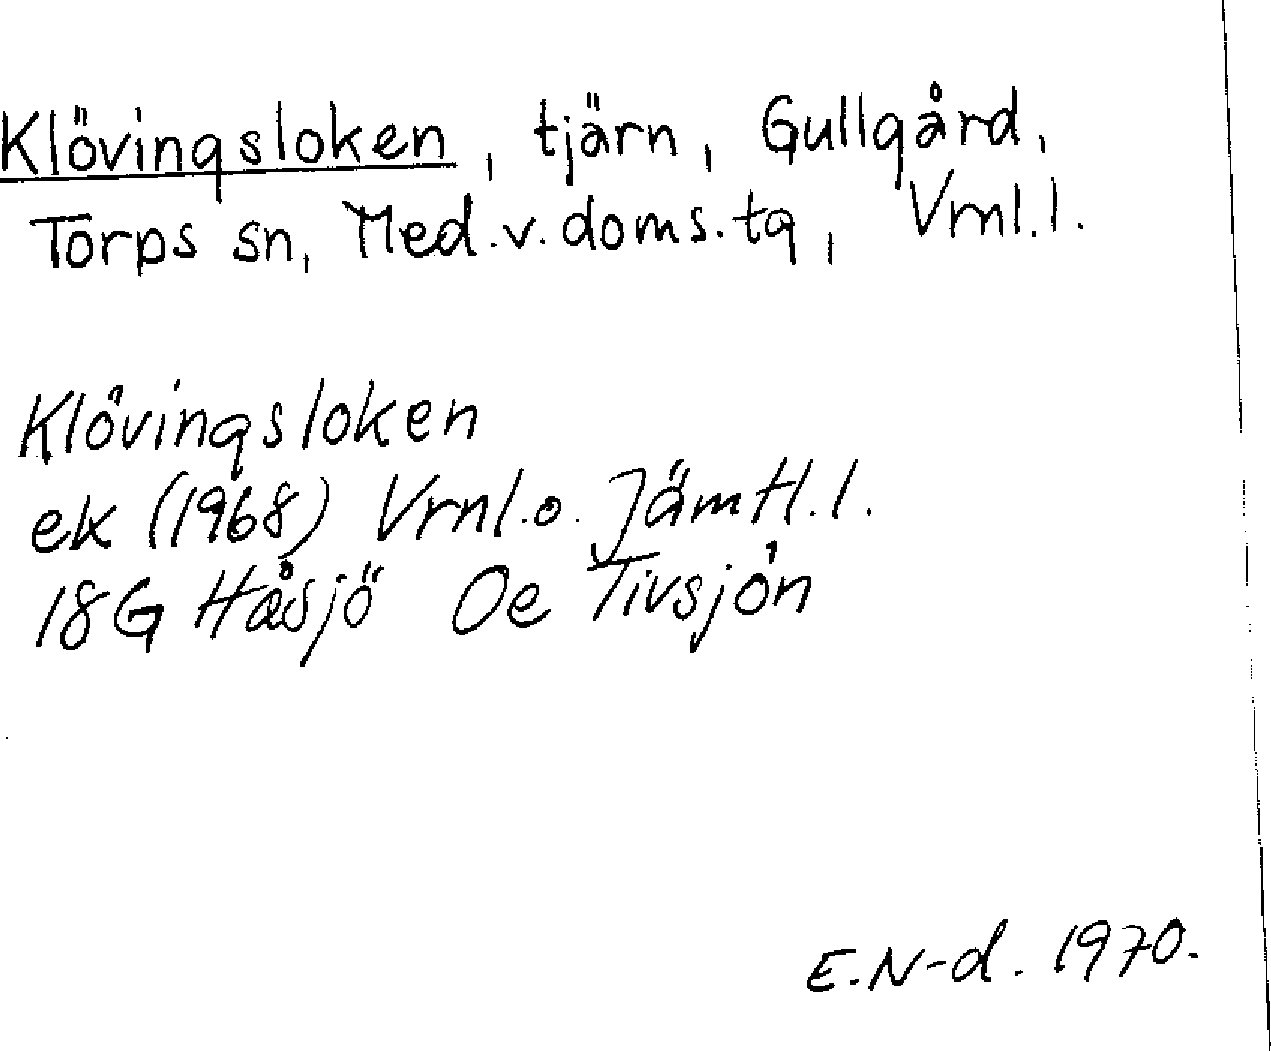 Klövingsloken, tjärn, Gullgård,
Torps sn, Med.v.doms.tg, Vrnl.l.
Klövingsloken
ek (1968) Vrnl.o. Jämtl.l.
18G Håsjö Oe Tivsjön
E.N-d. 1970.